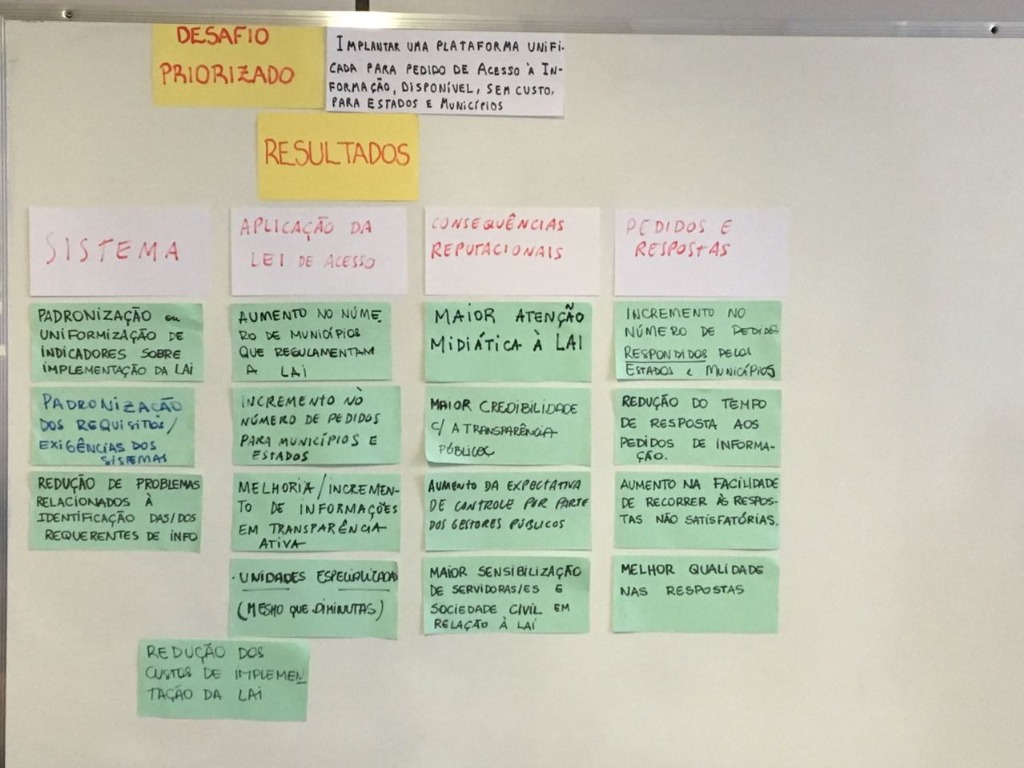 DESAFIO
PRIORIZADO
IMPLANTAR UMA PLATAFORMA UNIFI-
CADA PARA PEDIDO DE ACESSO À IN-
FORMAÇÃO, DISPONÍVEL, SEM CUSTO,
PARA ESTADOS E MUNICÍPIOS
RESULTADOS
SISTEMA
PADRONIZAÇÃO ou
UNIFORMIZAÇÃO DE
INDICADORES SOBRE
IMPLEMENTAÇÃO DA LAI
PADRONIZAÇÃO
DOS REQUISITOS/
EXIGÊNCIAS DOS
SISTEMAS
REDUÇÃO DE PROBLEMAS
RELACIONADOS À
IDENTIFICAÇÃO DAS/DOS
REQUERENTES DE INFO
APLICAÇÃO DA
LEI DE ACESSO
AUMENTO NO NÚME
RO DE MUNICÍPIOS
QUE REGULAMENTAM
A LAI
INCREMENTO NO
NÚMERO DE PEDIDOS
PARA MUNICÍPIOS E
ESTADOS
MELHORIA/INCREMEN-
TO DE INFORMAÇÕES
EM TRANSPARÊNCIA
ATIVA
. UNIDADES ESPECIALIZADAS
(MESMO QUE DIMINUTAS)
REDUÇÃO DOS
CUSTOS DE IMPLEMEN
TAÇÃO DA LAI
CONSEQUÊNCIAS
REPUTACIONAIS
MAIOR ATENÇÃO
MIDIÁTICA À LAI
MAIOR CREDIBILIDADE
C/ A TRANSPARÊNCIA
PÚBLICA
AUMENTO DA EXPECTATIVA
DE CONTROLE POR PARTE
DOS GESTORES PÚBLICOS
MAIOR SENSIBILIZAÇÃO
DE SERVIDORAS/ES E
SOCIEDADE CIVIL EM
RELAÇÃO À LAI
PEDIDOS E
RESPOSTAS
INCREMENTO NO
NÚMERO DE PEDIDOS
RESPONDIDOS PELOS
ESTADOS E MUNICÍPIOS
REDUÇÃO DO TEMPO
DE RESPOSTA AOS
PEDIDOS DE INFORMA-
ÇÃO.
AUMENTO NA FACILIDADE
DE RECORRER ÀS RESPOS-
TAS NÃO SATISFATÓRIAS.
MELHOR QUALIDADE
NAS RESPOSTAS